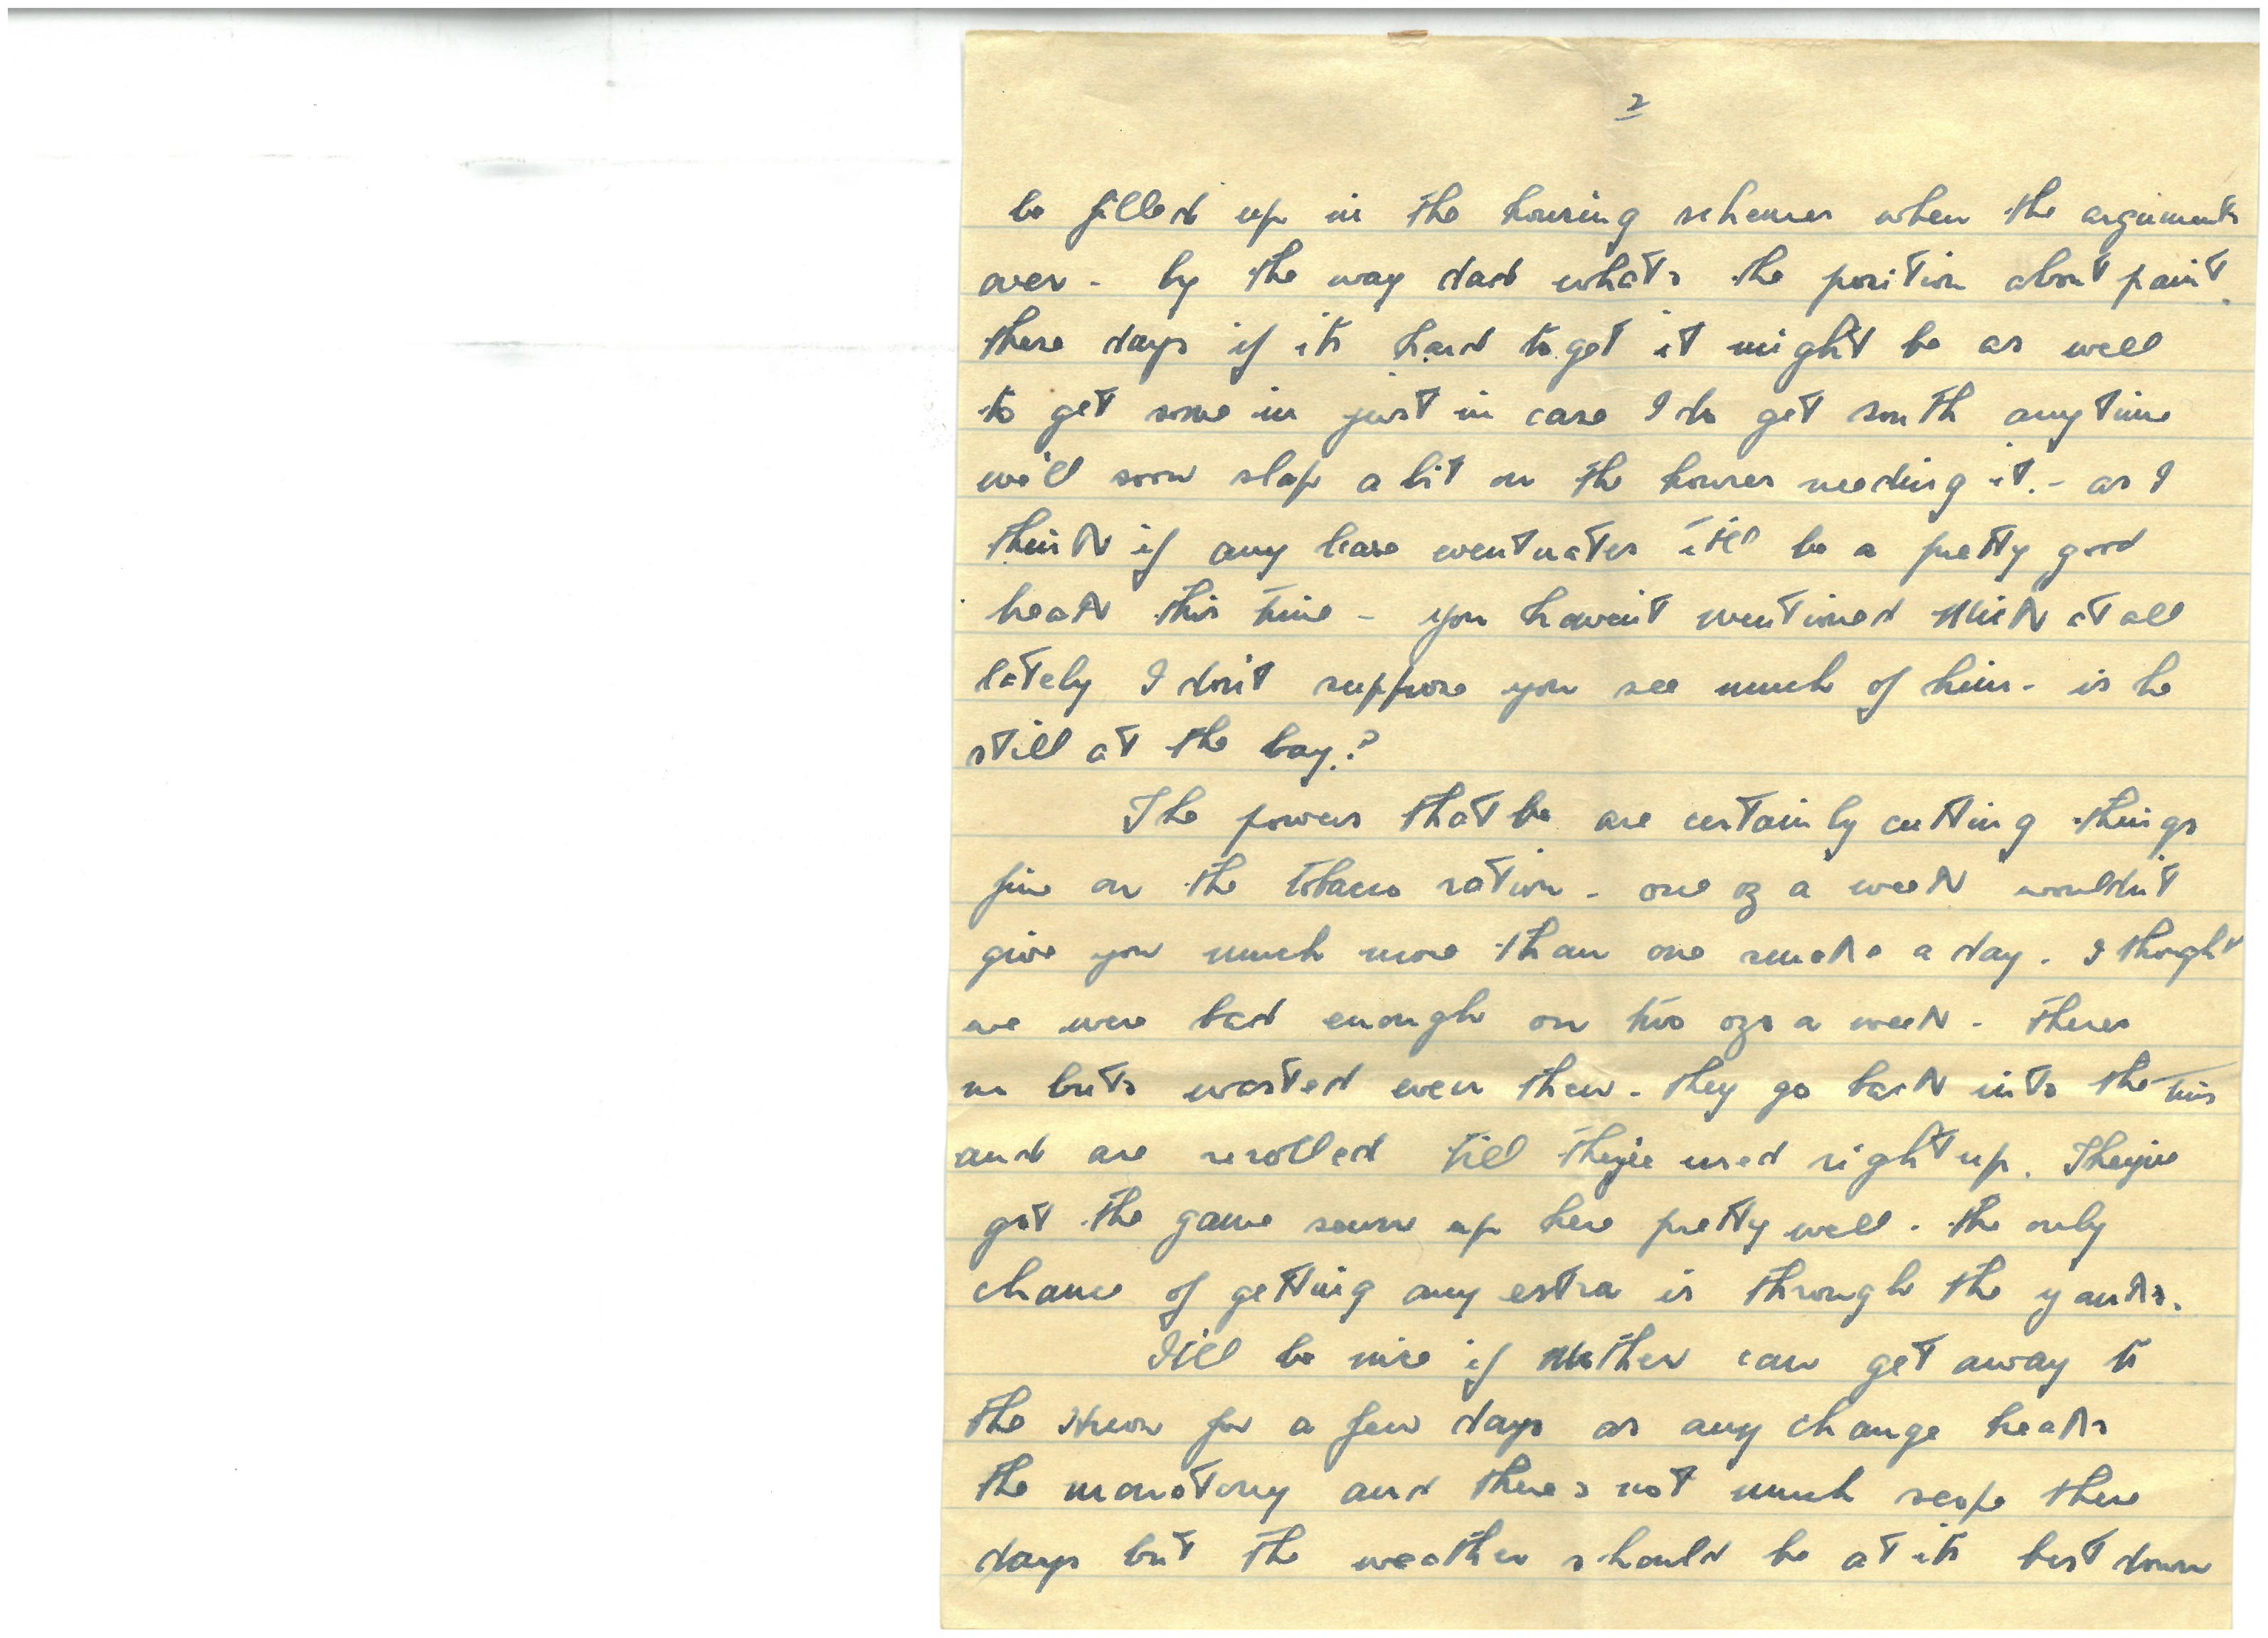 2
be filled up in the housing schemes when the arguments
over - by the way dad whats the position about paint
these days if its hard to get it might be as well
to get some in just in case I do get south anytime
we'll soon slap a bit on the houses needing it. - as I
think if any leave eventuates it'll be a pretty good
break this time - you haven't mentioned Mick at all
lately I don't suppose you see much of him - is he
still at the bay?
The powers that be are certainly cutting things
fine on the tobacco ration - one oz a week wouldn't
give you much more than one smoke a day. I thoght
we were bad enough on two ozs a week - theres
no buts wasted even then - they go back into the tins
and are rerolled till they're used right up. They've
got the game sewn up here pretty well. the only
chance of getting any extra is through the yanks.
It'll be nice if Mother can get away to
the Huon for a few days as any change breaks
the monotony and there's not much scope these
days but the weather should be at its best down